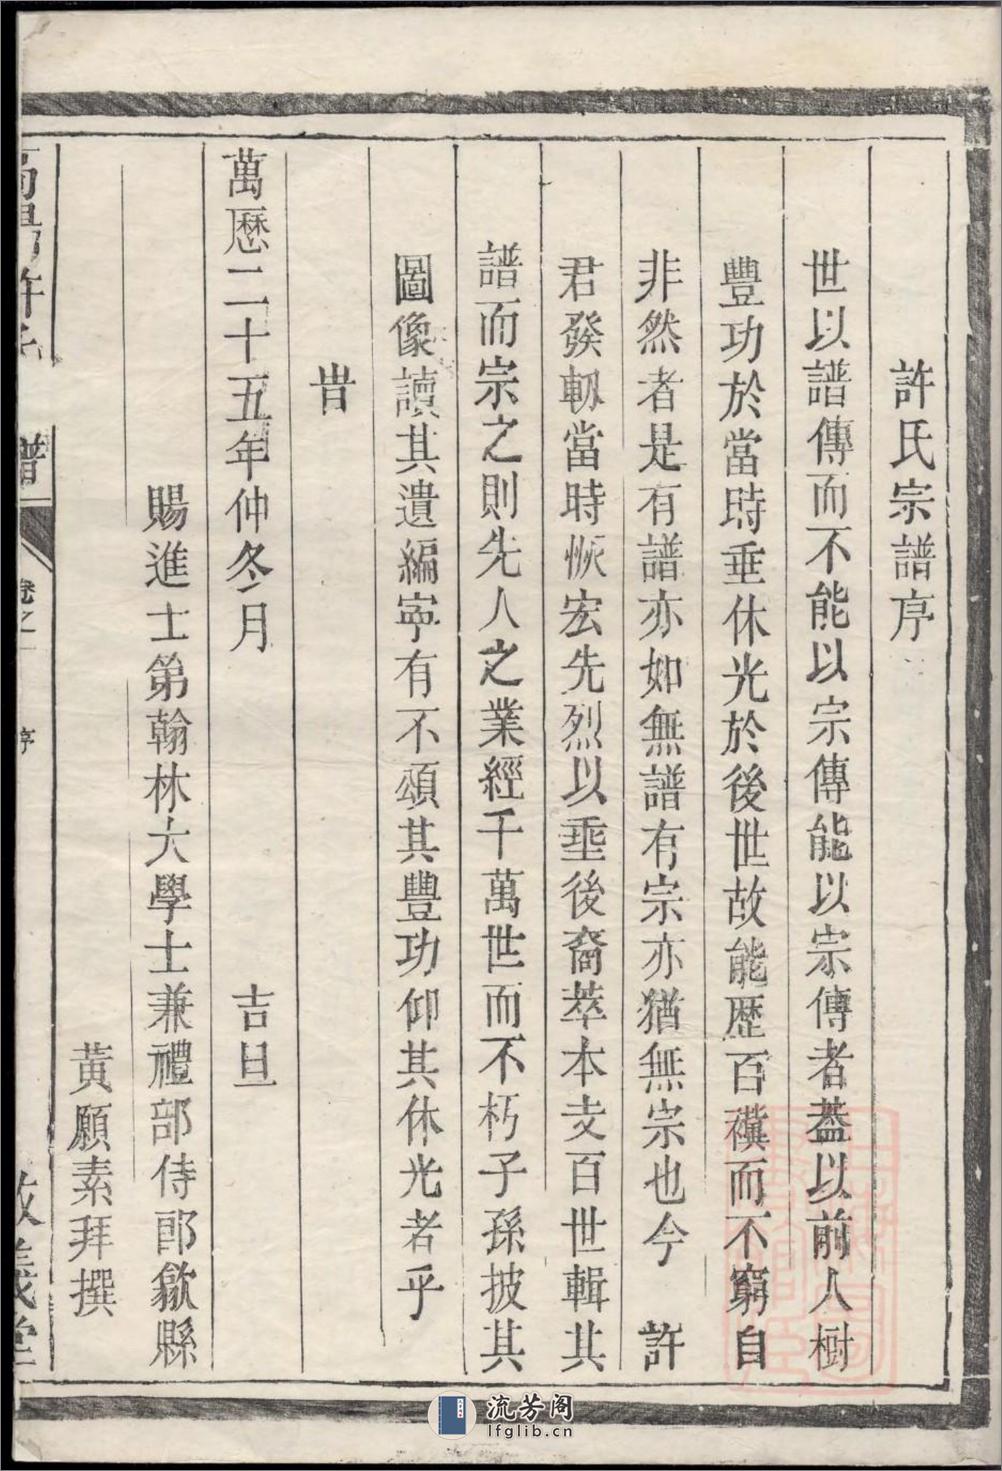 許氏宗譜序
世以譜傳而不能以宗傳能以宗傳者葢以前人樹
豐功於當時垂休光於後世故能歷百禩而不窮自
非然者是有譜亦如無譜有宗亦猶無宗也今　許
君發軔當時恢宏先烈以垂後裔萃本支百世輯其
譜而宗之則先人之業經千萬世而不朽子孫披其
圖像讀其遺編寧有不頌其豐功仰其休光者乎
旹
萬曆二十五年仲冬月　吉旦
賜進士第翰林大學士兼禮部侍郎歙縣
黃願素拜撰
譜
卷之一
序
流芳阁
lfglib.cn